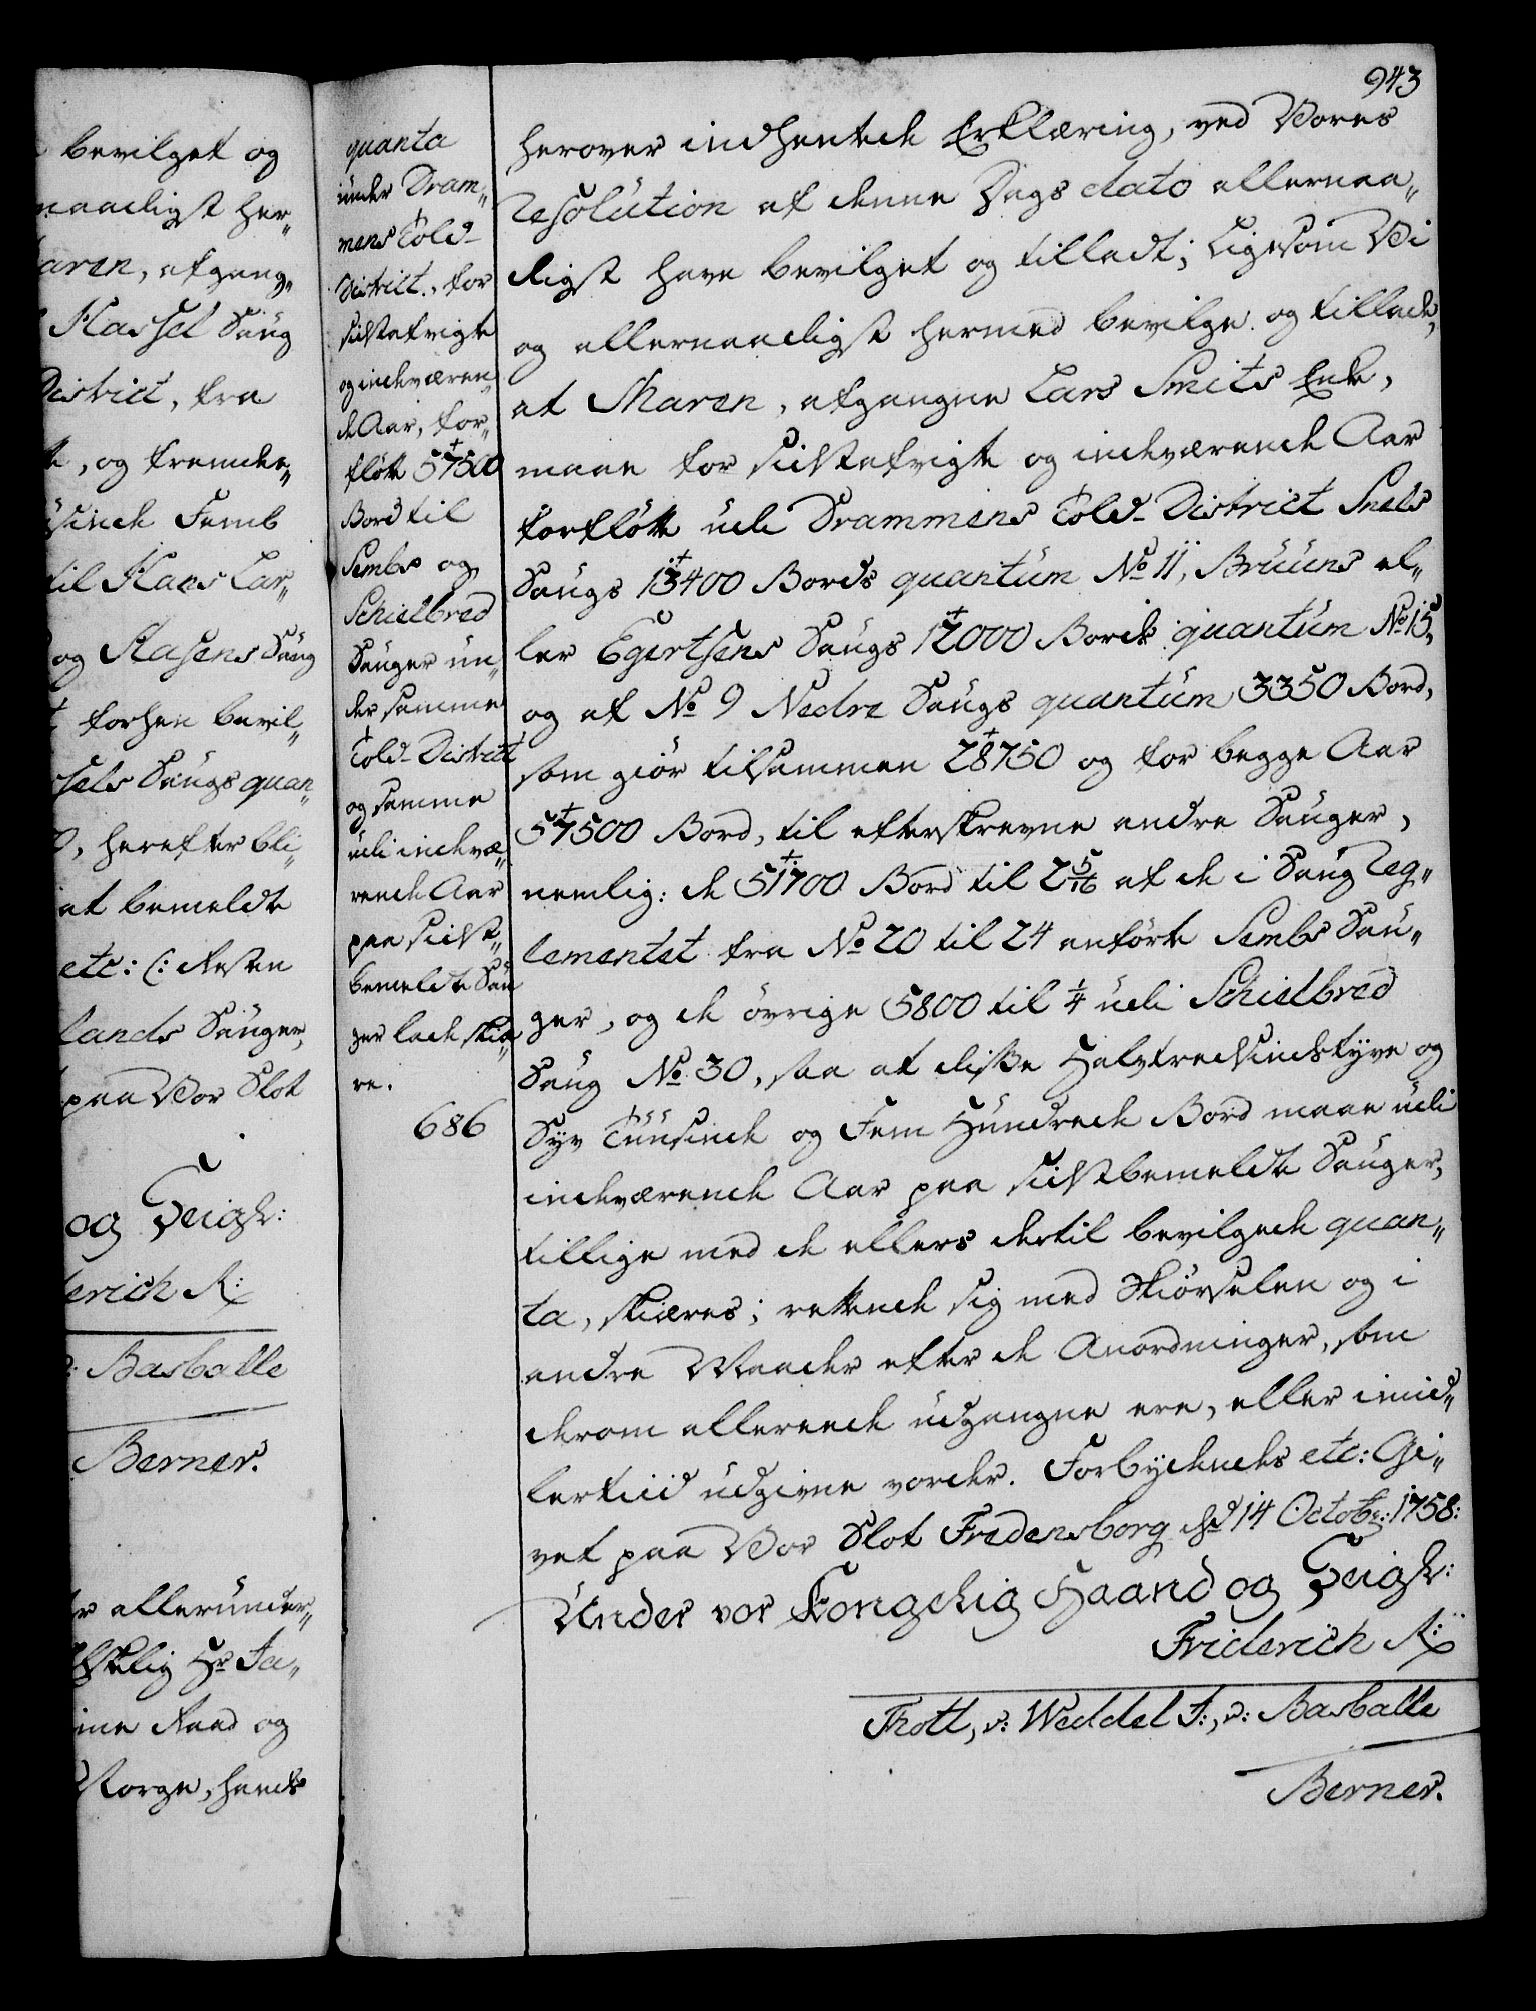 943
bevilget og
naadigst her„
aren, afgang„
Hassel Saug
District, fra
, og fremde„
sinde Femb
til Hans Lar„
og Aasens Saug
forhen bevil„
sels Saugs quan„
, herefter bli„
at bemeldte
etc: (: Resten
lands Sauger,
paa Vor Slot
og Seigl:
derich R:
v: Barballe
Berner.
r allerunder„
skelig Hr Ja„
ine Raad og
Norge, hands
quanta
under Dram„
mens Told-
District, for
sidstafvigte
og indværen„
de Aar, for„
flötte 57500
Bord til
Sembs og
Schielbred
Sauger un„
der samme
Told-District
og samme
udi indvæ„
rende Aar
paa sidst„
bemeldte Sau„
ger lade skiæ„
re.
686
herover indhentede Erklæring, ved Vores
Resolution af denne Dags dato allernaa„
digst have bevilget og tilladt; Ligesom Vi
og allernaadigst hermed bevilge og tillade,
at Maren, afgangne Lars Smits Enke,
maae for sidstafvigte og indværende Aar
forflötte udi Drammens Told-District Snels
Saugs 13400 Bords quantum No 11, Bruuns el„
ler Egertsens Saugs 12000 Bords quantum No 15,
og af No 9 Nedre Saugs quantum 3350 Bord,
som giör tilsammen 28750 og for begge Aar
57500 Bord, til efterskrevne andre Sauger,
nemlig: de 51700 Bord til 2 5/16 af de i Saug Reg„
lementet fra No 20 til 24 anförte Sembs Sau„
ger, og de övrige 5800 til 1/4 udi Schielbred
Saug No 30, saa at disse Halvtredsindstyve og
Syv Tuusinde og Fem Hundrede Bord maae udi
indværende Aar paa sidstbemeldte Sauger,
tillige med de ellers dertil bevilgede quan„
ta, skiæres; rettende sig med Skiörselen og i
andre Maader efter de Anordninger, som
derom allerede udgangne ere, eller imid„
lertiid udgivne vorder. Forbydendes etc: Gi„
vet paa Vor Slot Fredensborg dend 14 Octobr: 1758:
Under vor Kongelig Haand og Seigl:
Friderich R:
Trott, v: Weddel F:, v: Barballe
Berner.